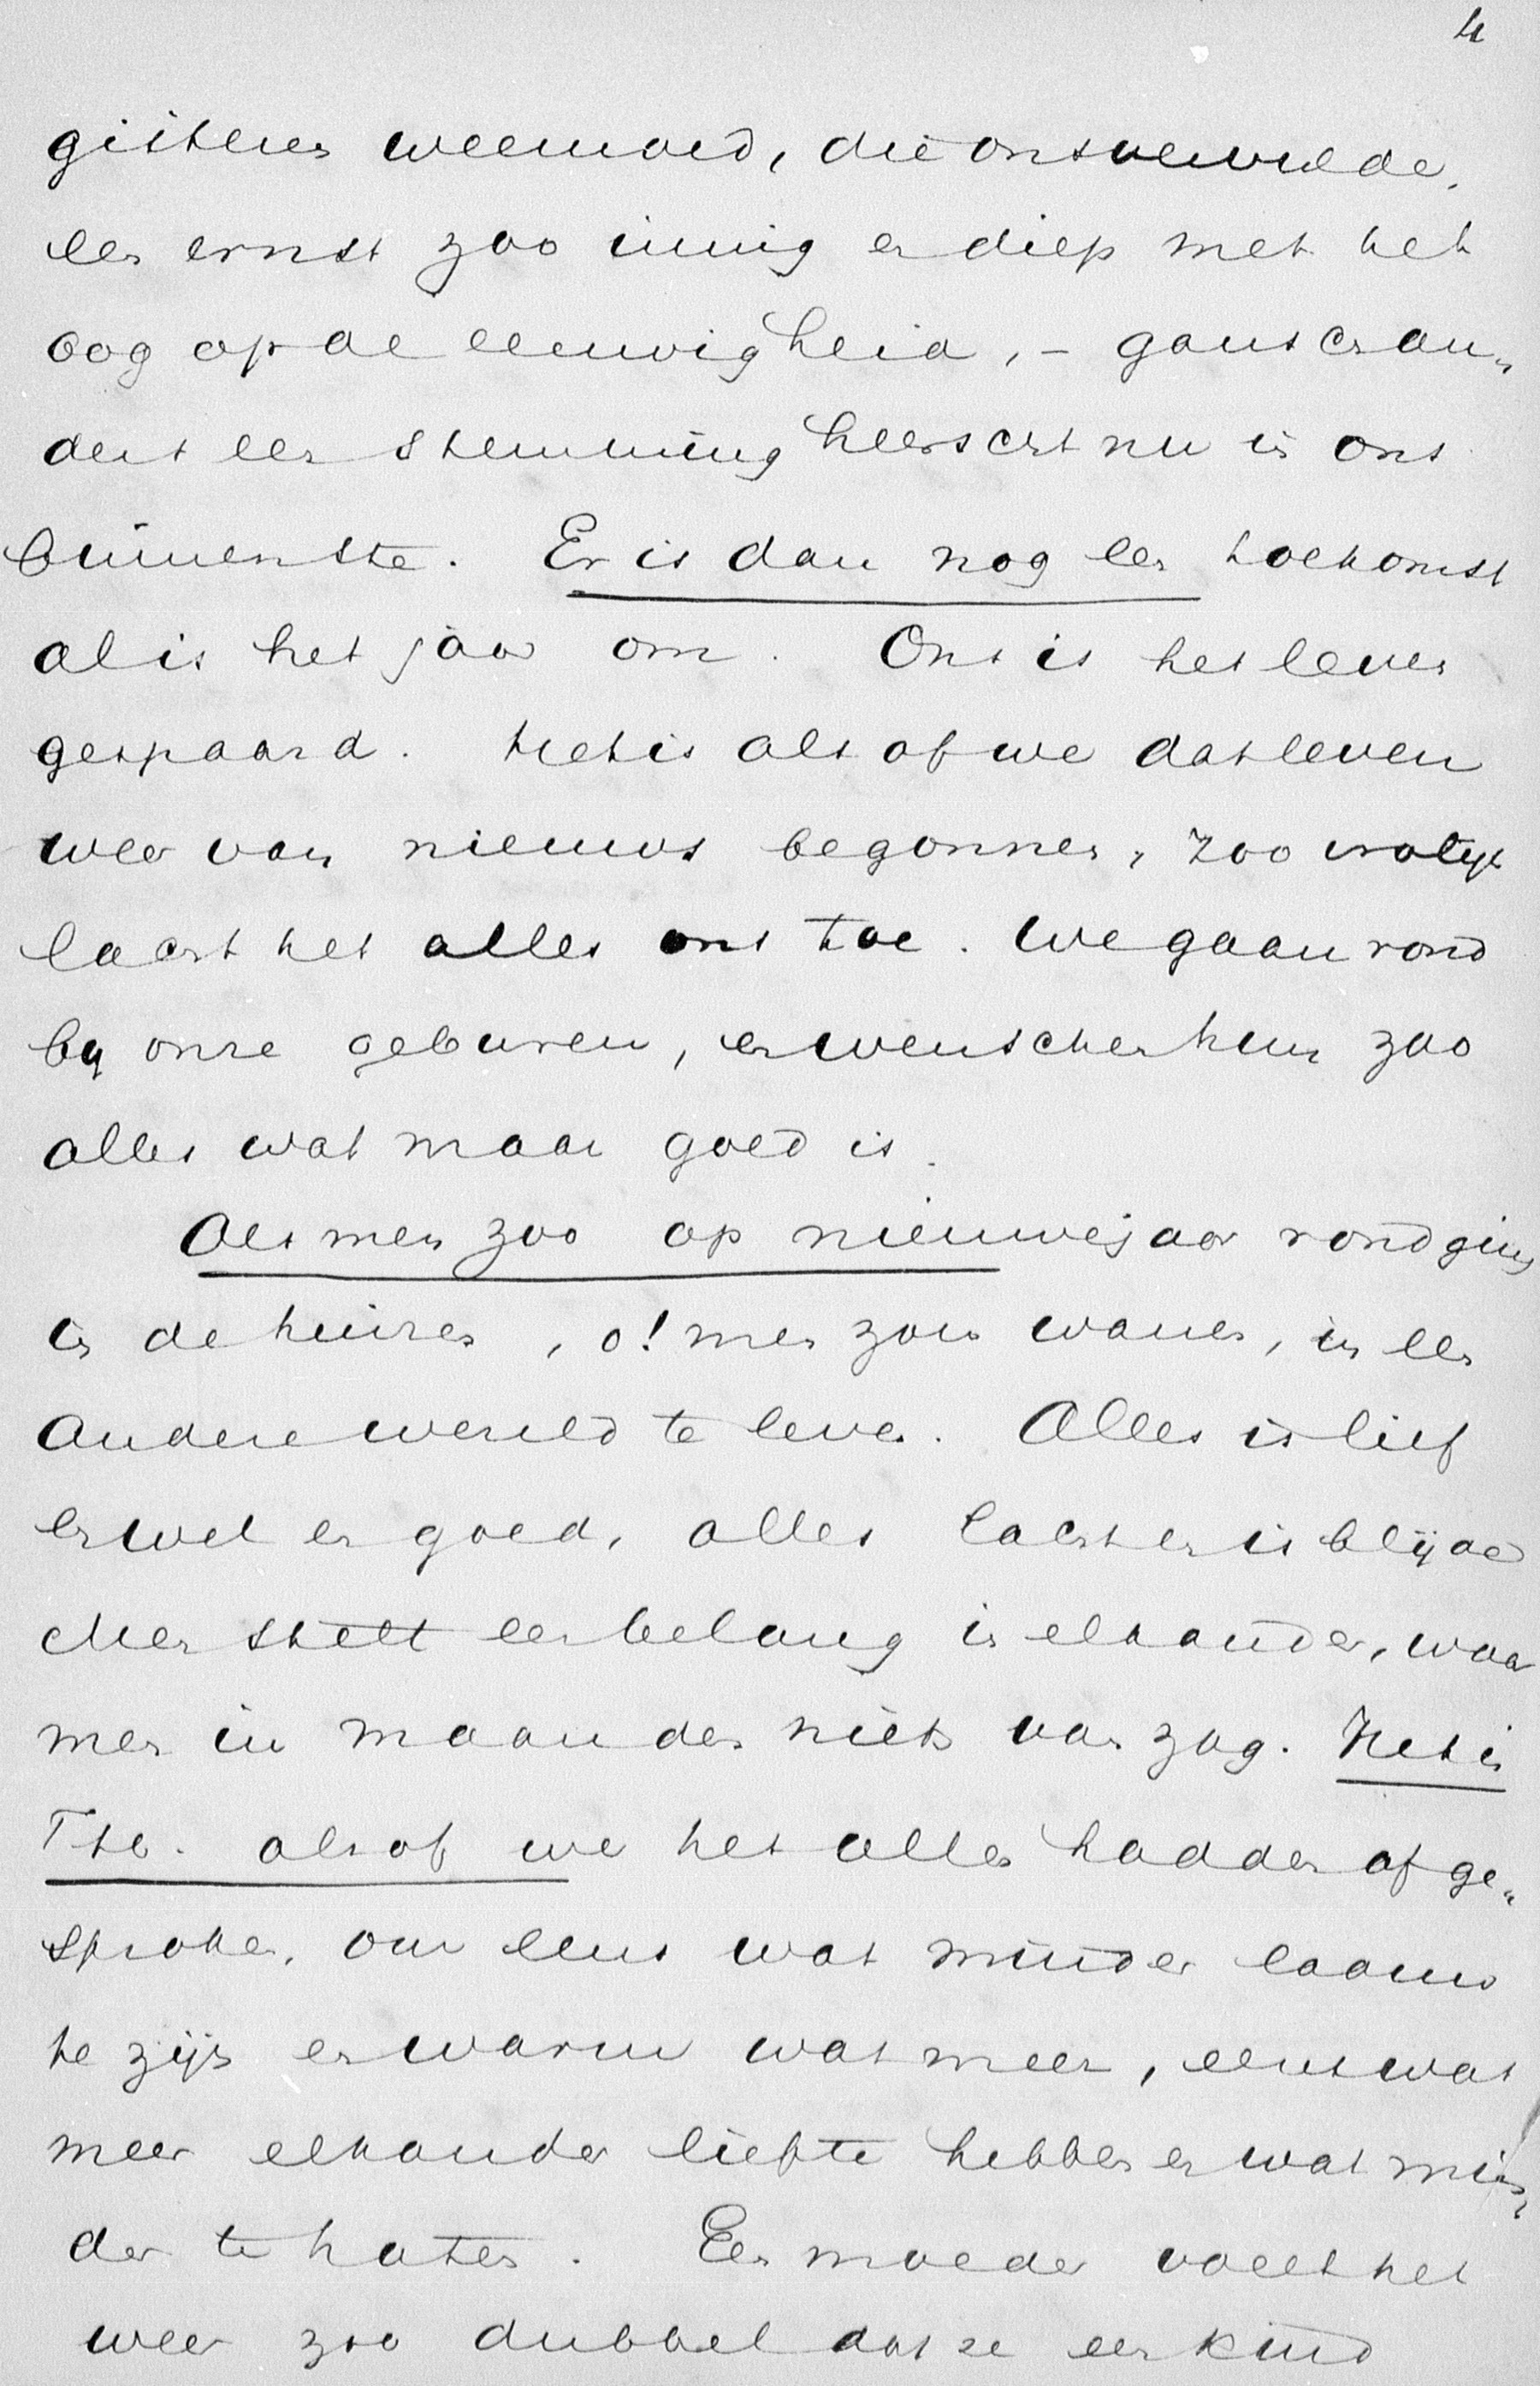 4
gisteren weemoed, die ons vervulde,
een ernst zoo innig en diep met het
oog op de eeuwigheid, – gansch an„
ders een stemming heerscht nu in ons
binnenste. Er is dan nog een toekomst
al is het jaar om. Ons is het leven
gespaard. Het is als of we dat leven
weer van nieuws begonnen, zoo vrolijk
lacht het alles ons toe. We gaan rond
bij onze geburen, en wenschen hun zoo
alles wat maar goed is.
Als men zoo op nieuwejaar rondging
in de huizen, o! men zou wanen, in een
andere wereld te leven. Alles is lief
en wel en goed, alles lacht en is blijde
Men stelt een belang in elkander, waar
men in maanden niets van zag. Het is
T.h. alsof we het alles hadden afge„
sproken, om eens wat minder laauw
te zijn en warm wat meer, eens wat
meer elkander liefte hebben en wat min„
der te haten. Een moeder voelt het
weer zoo dubbel dat ze een kind